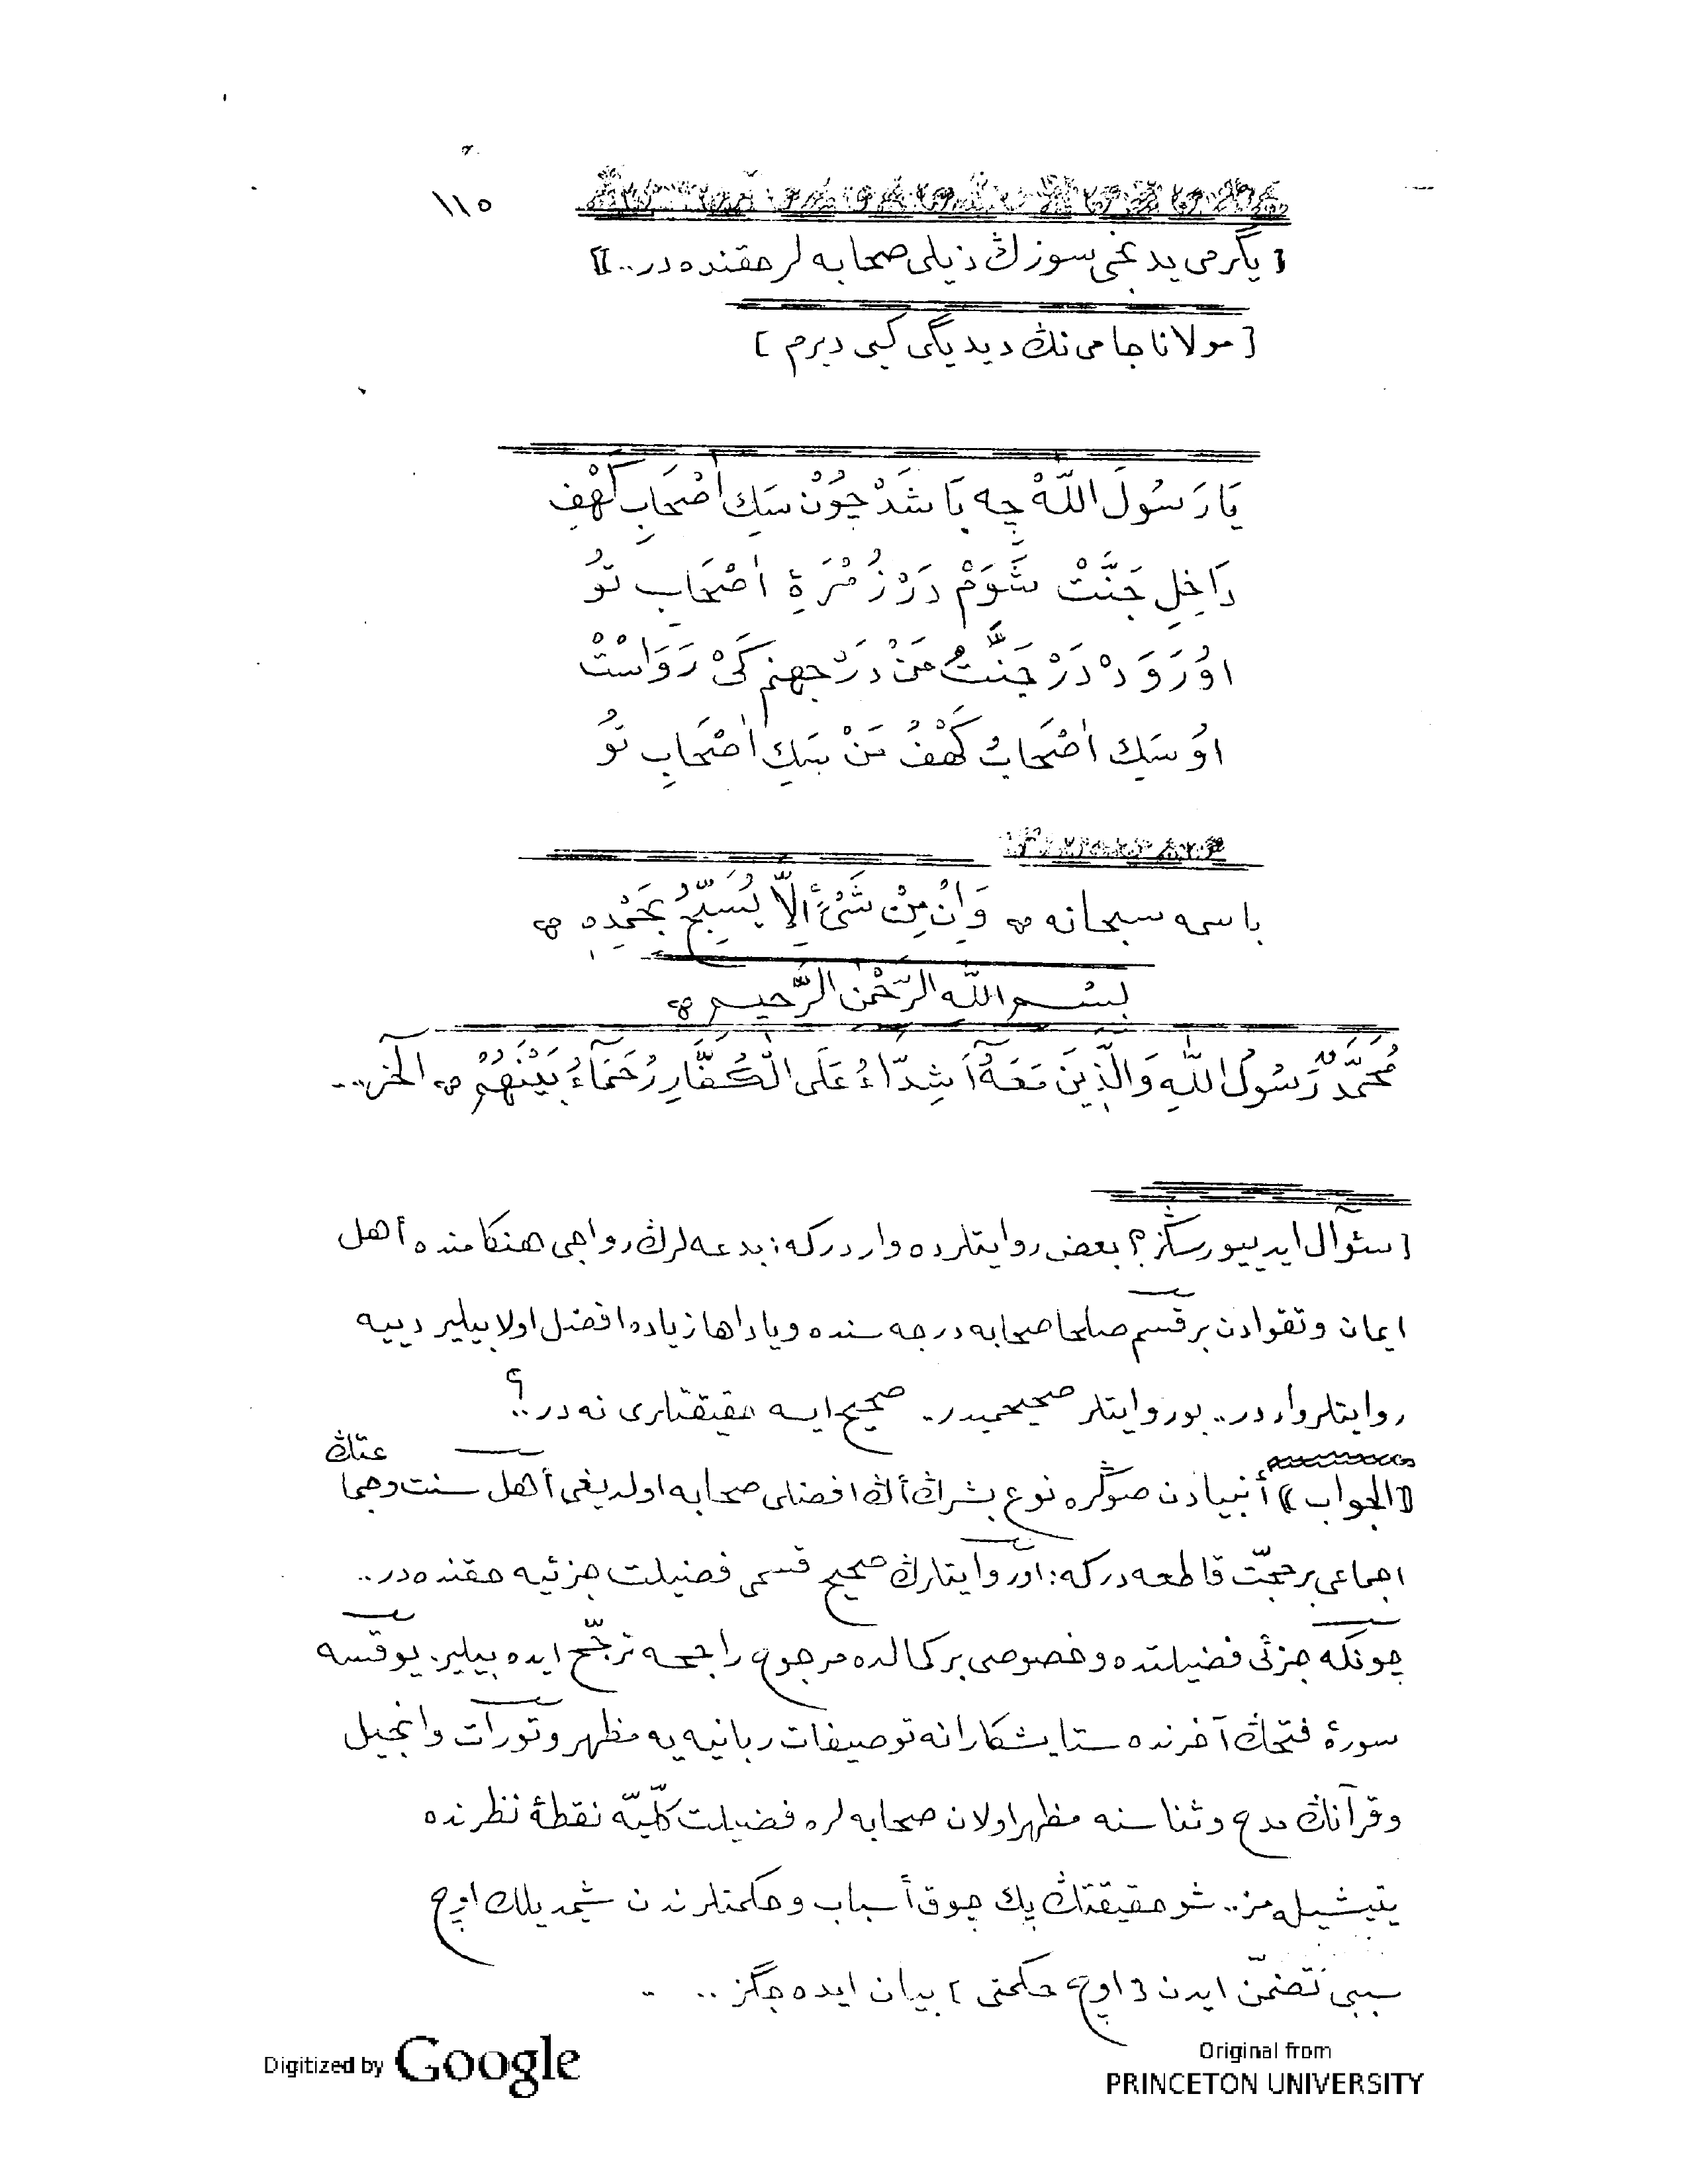 ١١٥
[ يگرمى يدنجى سوزڭ ذيلى صحابه لر حقنده در.. ]
[ مولانا جامى نڭ ديديگى كبى ديرم ]
يَا رَسُولَ اللّٰهْ چِه بَاشَدْ چُونْ سَكِ اَصْحَابِ كَهْفِ
دَاخِلِ جَنَّتْ شَوَمْ دَرْ زُمْرَۀِ اَصْحَابِ تُو
اُو رَوَدْ دَرْ جَنَّتُ مَنْ دَرْ جهنم كَىْ رَوَاسْتْ
اُو سَكِ اَصْحَابِ كَهْفُ مَنْ سَكِ اَصْحَابِ تُو
باسمه سبحانه ۞ وَاِنْ مِنْ شَىْءٍ اِلَّا يُسَبِّحُ بِحَمْدِهِ ۞
بِسْمِ اللّٰهِ الرَّحْمٰنِ الرَّحِيمِ ۞
مُحَمَّدٌ رَسُولُ اللّٰهِ وَالَّذِينَ مَعَهُٓ اَشِدَّٓاءُ عَلَى الْكُفَّارِ رُحَمَٓاءُ بَيْنَهُمْ ۞ الخ..
[ سئوآل ايدييورسڭز؟ بعض روايتلرده وارد دركه: بدعه لرڭ رواجى هنكامنده أهل
ايمان و تقوادن بر قسم صلحا صحابه درجه سنده و يا داها زياده افضل اولابيلير دييه
روايتلر وارد در.. بو روايتلر صحيحميدر.. صحيح ايسه حقيقتلرى نه در..؟
[[الجواب]] أنبيادن صوڭره نوع بشرڭ أڭ افضلى صحابه اولديغى أهل سنت و جما عتڭ
اجماعى بر حجّت قاطعه دركه: او روايتلرڭ صحيح قسمى فضيلت جزئيه حقنده در..
چونكه جزئى فضيلتده و خصوصى بر كمالده مرجوح راجحه ترجّح ايده بيلير. يوقسه
سورۀ فتحڭ آخرنده ستايشكارانه توصيفات ربانيه يه مظهر و تورات و انجيل
و قرآنڭ مدح و ثناسنه مظهر اولان صحابه لره فضيلت كلّيّه نقطۀ نظرنده
يتيشيله مز.. شو حقيقتڭ پك چوق أسباب و حكمتلرندن شيمديلك اوچ
سببى تضمّن ايدن [ اوچ حكمتى ] بيان ايده جگز..
Digitized by Google
Original from
PRINCETON UNIVERSITY